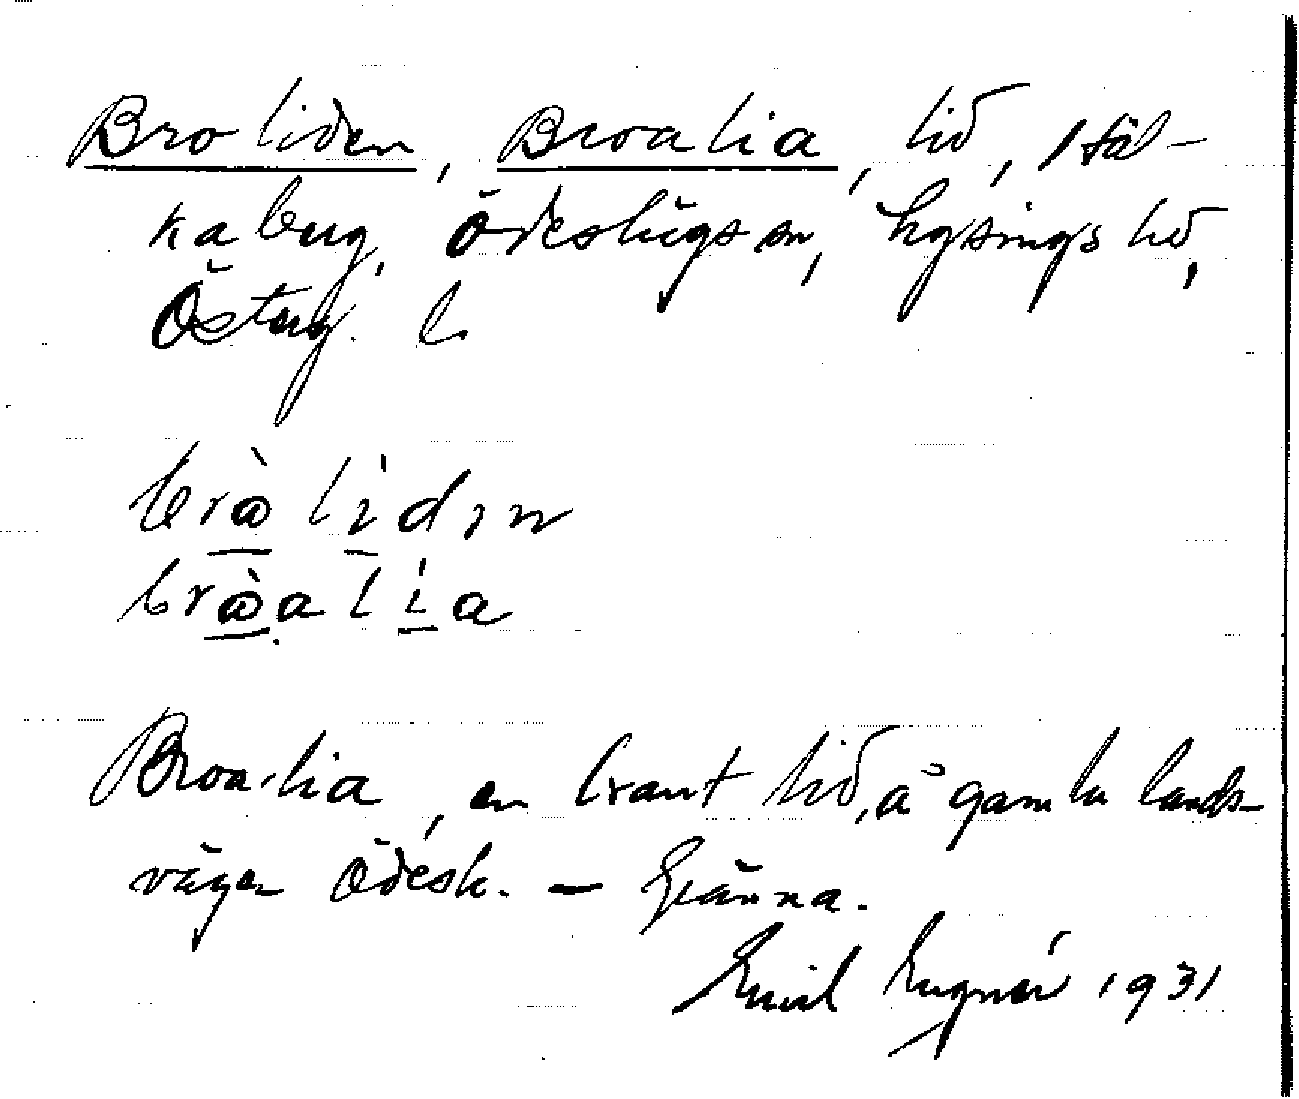 Broliden, Broalia, lid, Stål-
kaberg, Ödeshögs sn, Lysings hd,
Österg. l

brò lìdın
bròalìa
Broalia, en brant lid, å gamla lands-
vägen Ödesh. – Gränna.
Emil 1931